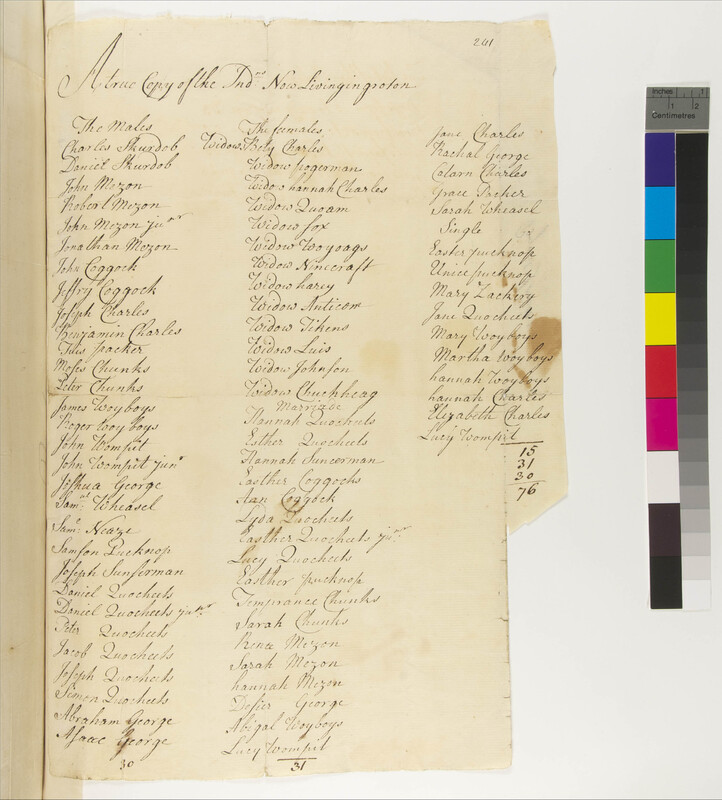 241
A true Copy of the Ind.ns Now Living in groton
The Males
Charles Skurdob
Daniel Skurdob
John Mezon
Robert Mezon
John Mezon junr
Jonathan Mezon
John Coggock
Jeffry Coggock
Joseph Charles
Benjamin Charles
Titus packer
Moses Chunks
Peter Chunks
James Woyboys
Roger Woyboys
John Wompit
John Wompit junr
Joshua George
Saml Wheasel
Saml Neaze
Samson Pucknop
Joseph Sunserman
Daniel Quocheets
Daniel Quocheets junr
Peter Quocheets
Jacob Quocheets
Joseph Quocheets
Simon Quocheets
Abraham George
Asace George
30
The females
Widow Bety Charles
Widow pogerman
Widow hannah Charles
Widow Quoam
Widow fox
Widow Woyoags
Widow Nincraft
Widow harey
Widow Anticow
Widow Tikens
Widow Luis
Widow Johnson
Widow Chuchheag
Marriage
Hannah Quocheets
Esther Quocheets
Hannah Suncerman
Easther Coggocks
Aan Coggock
Lyda Quocheets
Easther Quocheets junr
Lucy Quocheets
Easther pucknop
Temprance Chunks
Sarah Chunks
Rena Mezon
Sarah Mezon
hannah Mezon
Desier George
Abigal Woyboys
Lucy Wompit
31
Jane Charles
Rachal George
Catarn Charles
Grace Packer
Sarah Wheasel
Single
Easter pucknop
Unice pucknop
Mary Zackery
Jane Quocheets
Mary Woyboys
Martha Woyboys
hannah Woyboys
hannah Charles
Elizabeth Charles
Lucy Wompit
15
31
30
76
Inches
1
2
Centimetres